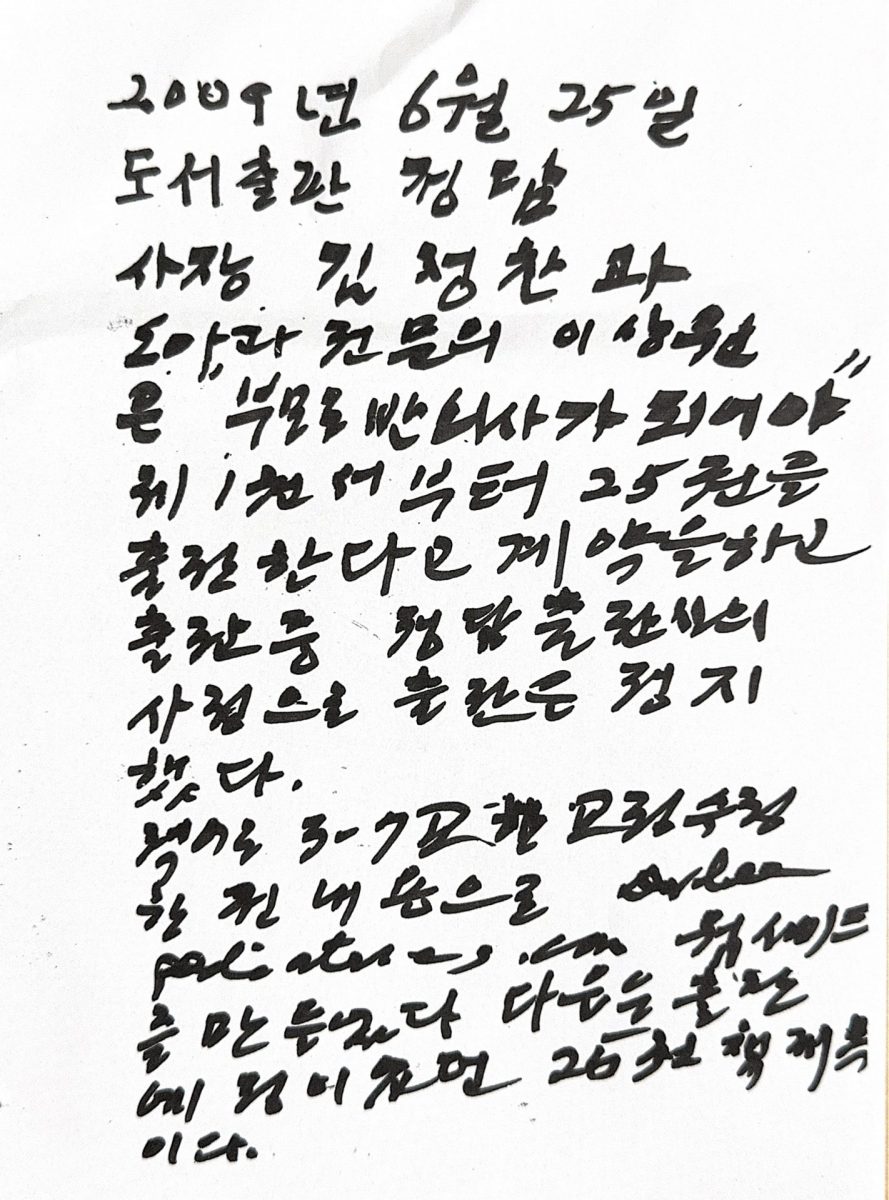 2009년 6월 25일
도서출판 정담
사장 김정찬과
소아과 전문의 이상원
은 "부모도 반의사가 되어야"
제1권서부터 25권을
출간한다고 계약을하고
출판중 정담출판사의
사정으로 출판은 정지
했다.
적어도 5-7교한 교정수정
한 전 내용으로
pediatrics.com 웹사이트
를 만들었다 다음은 출판
예정이였던 26권 책 제목
이다.